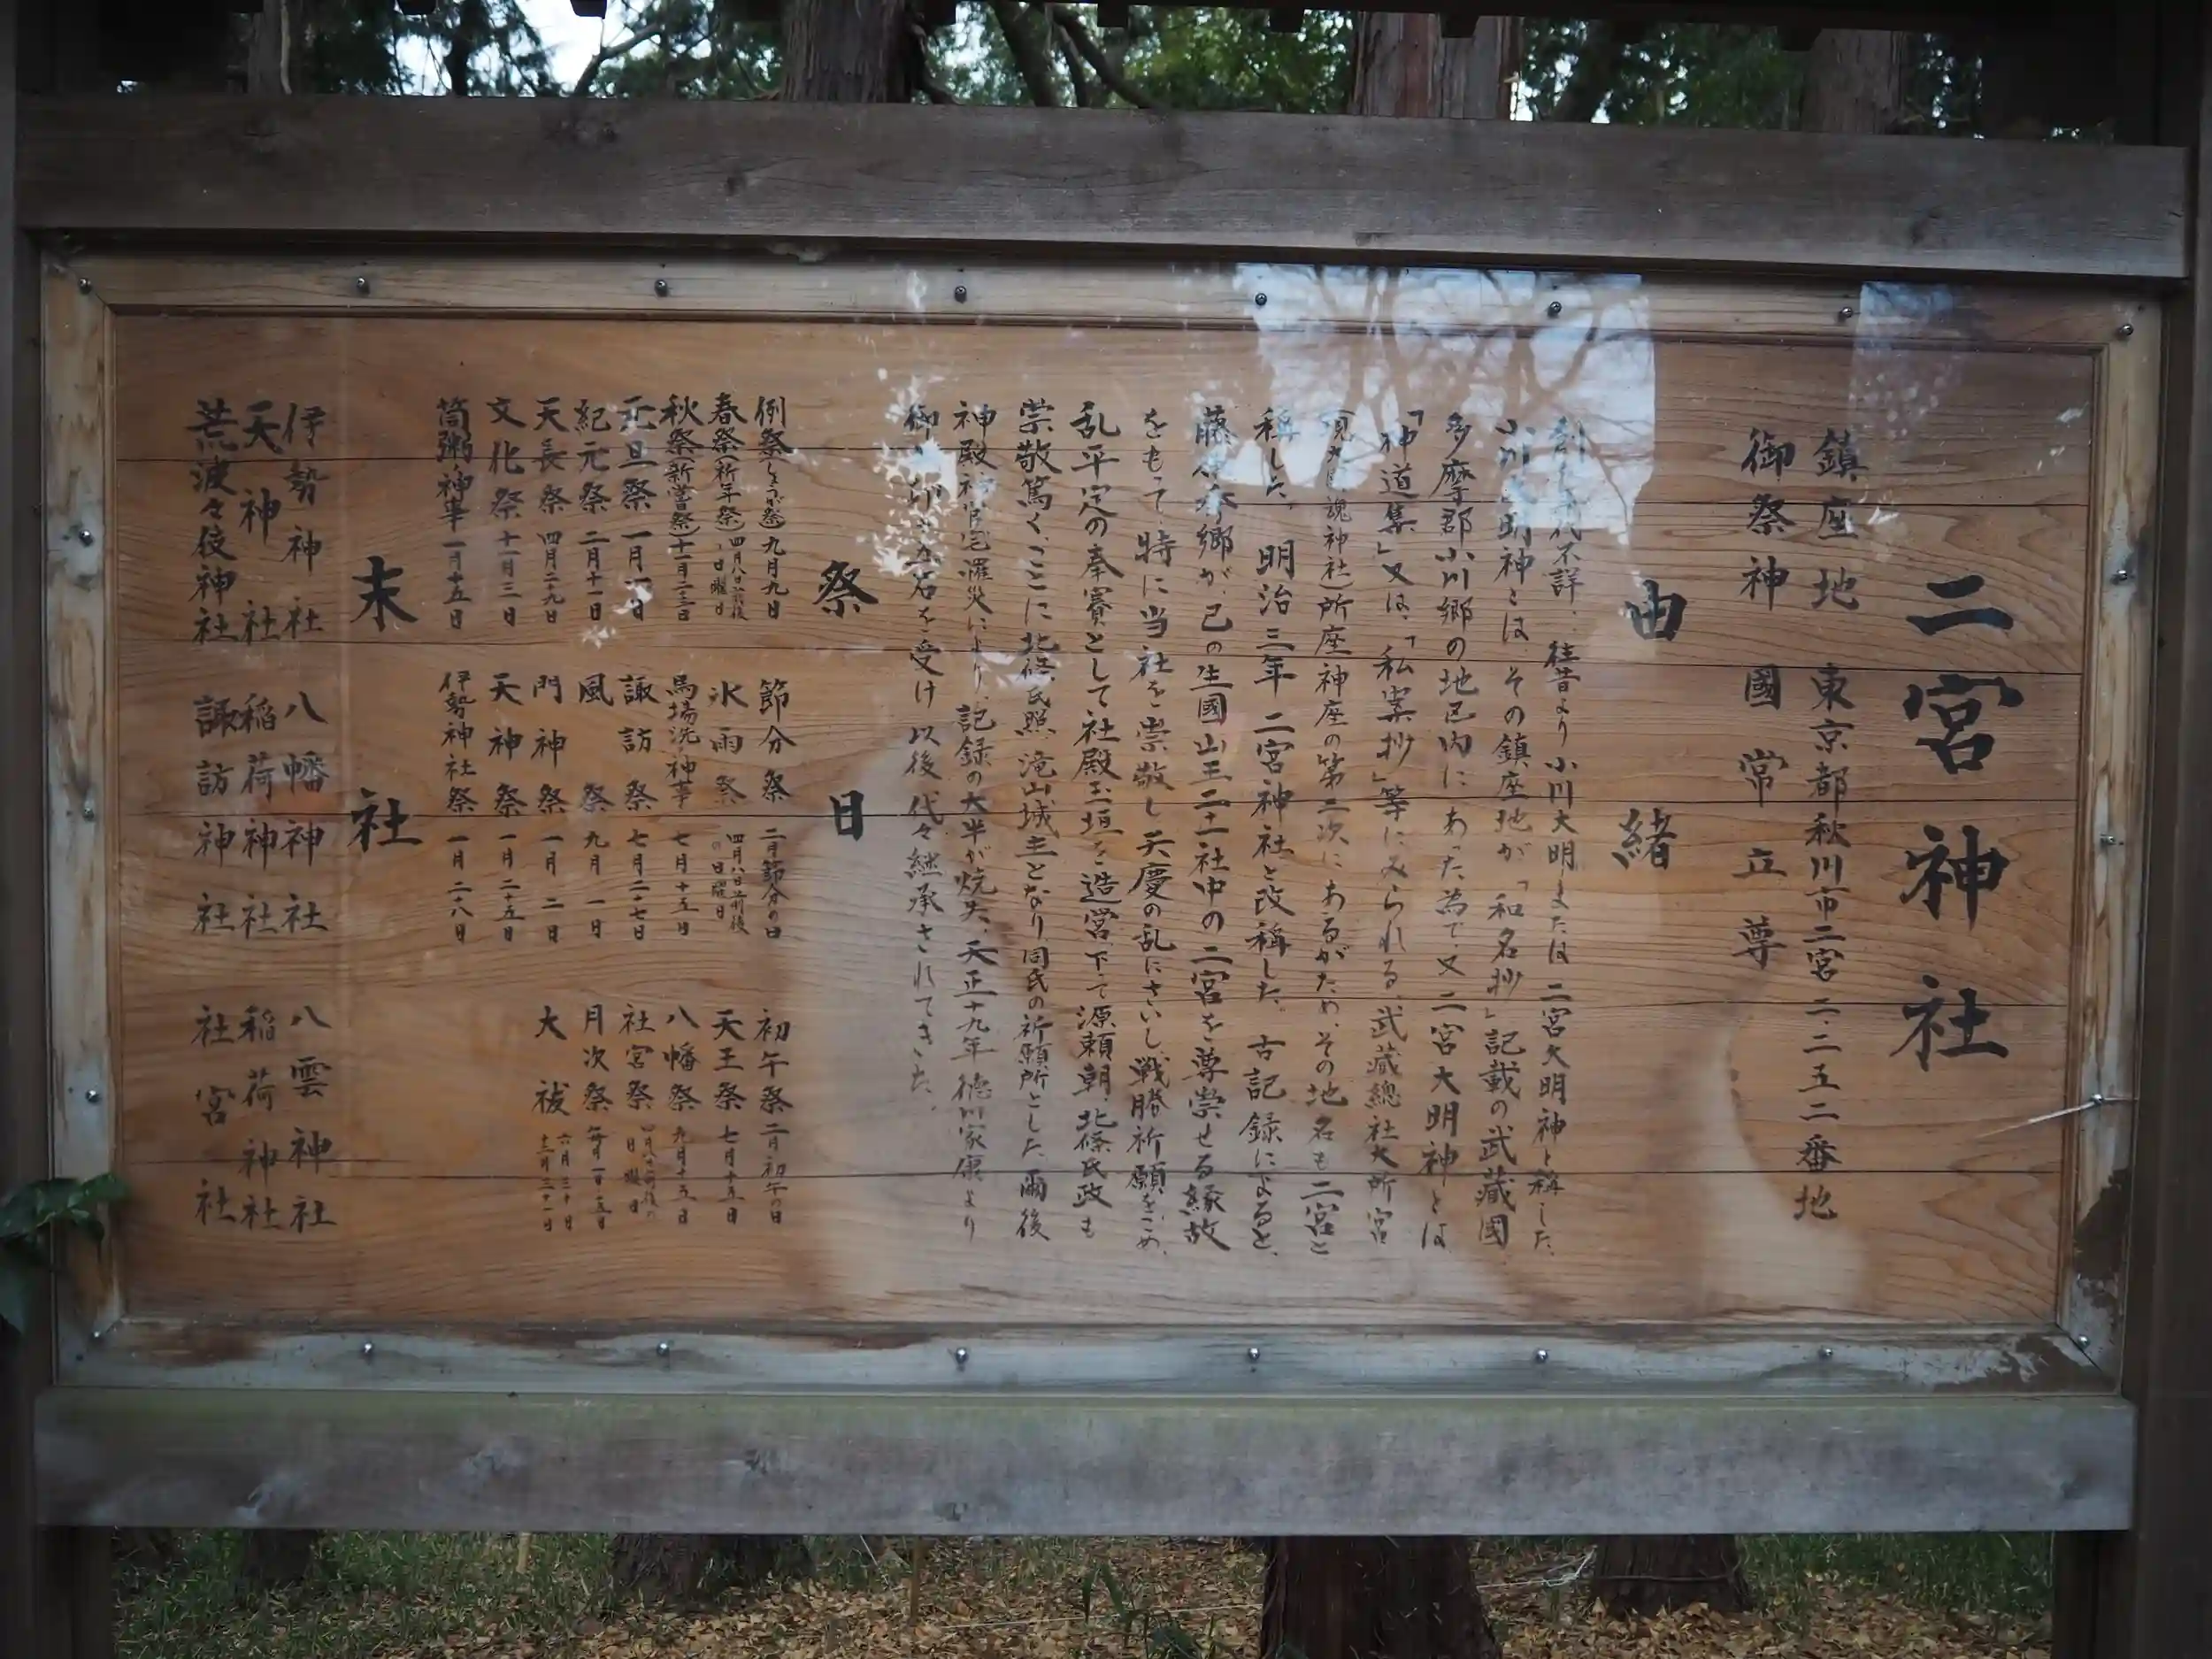 二宮神社
鎮座地 東京都秋川市二宮二・二五二番地
御祭神 國常立尊
由緒
創立年代不詳、往昔より小川大明神または二宮大明神と称した。
小川大明神とは、その鎮座地が「和名抄」記載の武蔵國
多摩郡小川郷の地区内にあった為で、又二宮大明神とは
「神道集」又は、「私案抄」等にみられる、武蔵總社大所宮
魂神社)所座神座の第二次にあるがため、その地名も二宮と
称した。明治三年二宮神社と改称した。古記録によると、
藤原秀郷が、己の生國山王二十一社中の二宮を尊崇せる縁故
をもって、特に当社を崇敬し天慶の乱にさいし、戦勝祈願をこめ、
乱平定の奉賽として社殿玉垣を造営、下って源頼朝、北條氏政も
崇敬篤く、ことに北條氏照滝山城主となり同氏の祈願所とした、爾後
神殿神官宅羅災により、記録の大半が焼失、天正十九年徳川家康より
御朱印 石を受け以後代々継承されてきた。
祭日
例祭(しょうが祭)九月九日
春祭(祈年祭)四月八日前後の日曜日
秋祭(新嘗祭)十一月二十三日
元旦祭 一月一日
紀元祭 二月十一日
天長祭 四月二十九日
文化祭 十一月三日
筒粥神事 一月十五日
節分祭 二月節分の日
氷雨祭 四月八日前後の日曜日
馬場洗神事 七月十五日
諏訪祭 七月二十七日
風祭 九月一日
門神祭 一月二日
天神祭 一月二十五日
伊勢神社祭 一月二十八日
初午祭 二月初午の日
天王祭 七月十五日
八幡祭 九月十五日
社宮祭 四月八日前後の日曜日
月次祭 毎月一日・十五日
大祓 六月三十日 十二月三十一日
末社
伊勢神社
天神社
荒波々伎神社
八幡神社
稲荷神社
諏訪神社
八雲神社
稲荷神社
社宮社